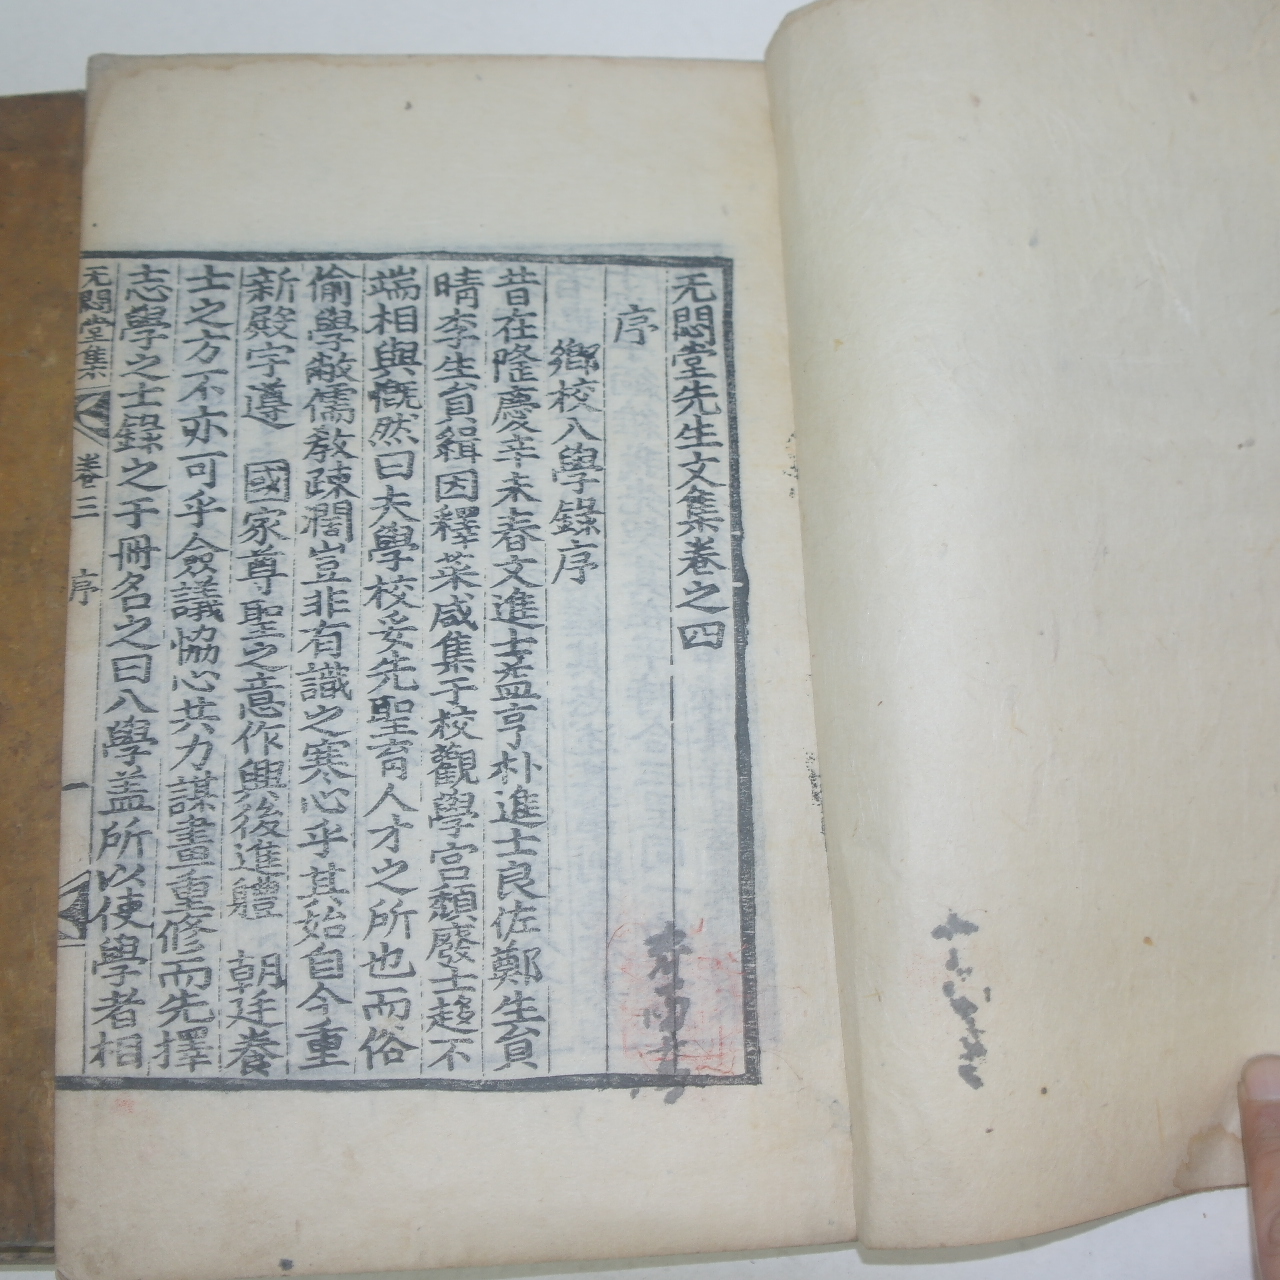 无悶堂先生文集卷之四
序
鄕校入學錄序
昔在隆慶辛未春文進士益亨朴進士良佐鄭生員
晴李生員緝因釋菜咸集于校觀學宮頹廢士趍不
端相與慨然曰夫學校妥先聖育人才之所也而俗
偷學敝儒敎疎濶豈非有識之寒心乎其始自今重
新殿宇遵 國家尊聖之意作興後進軆 朝廷養
士之方不亦可乎僉議恊心共力謀畫重修而先擇
志學之士錄之于冊名之曰入學盖所以使學者相
无悶堂集 卷三 序 一